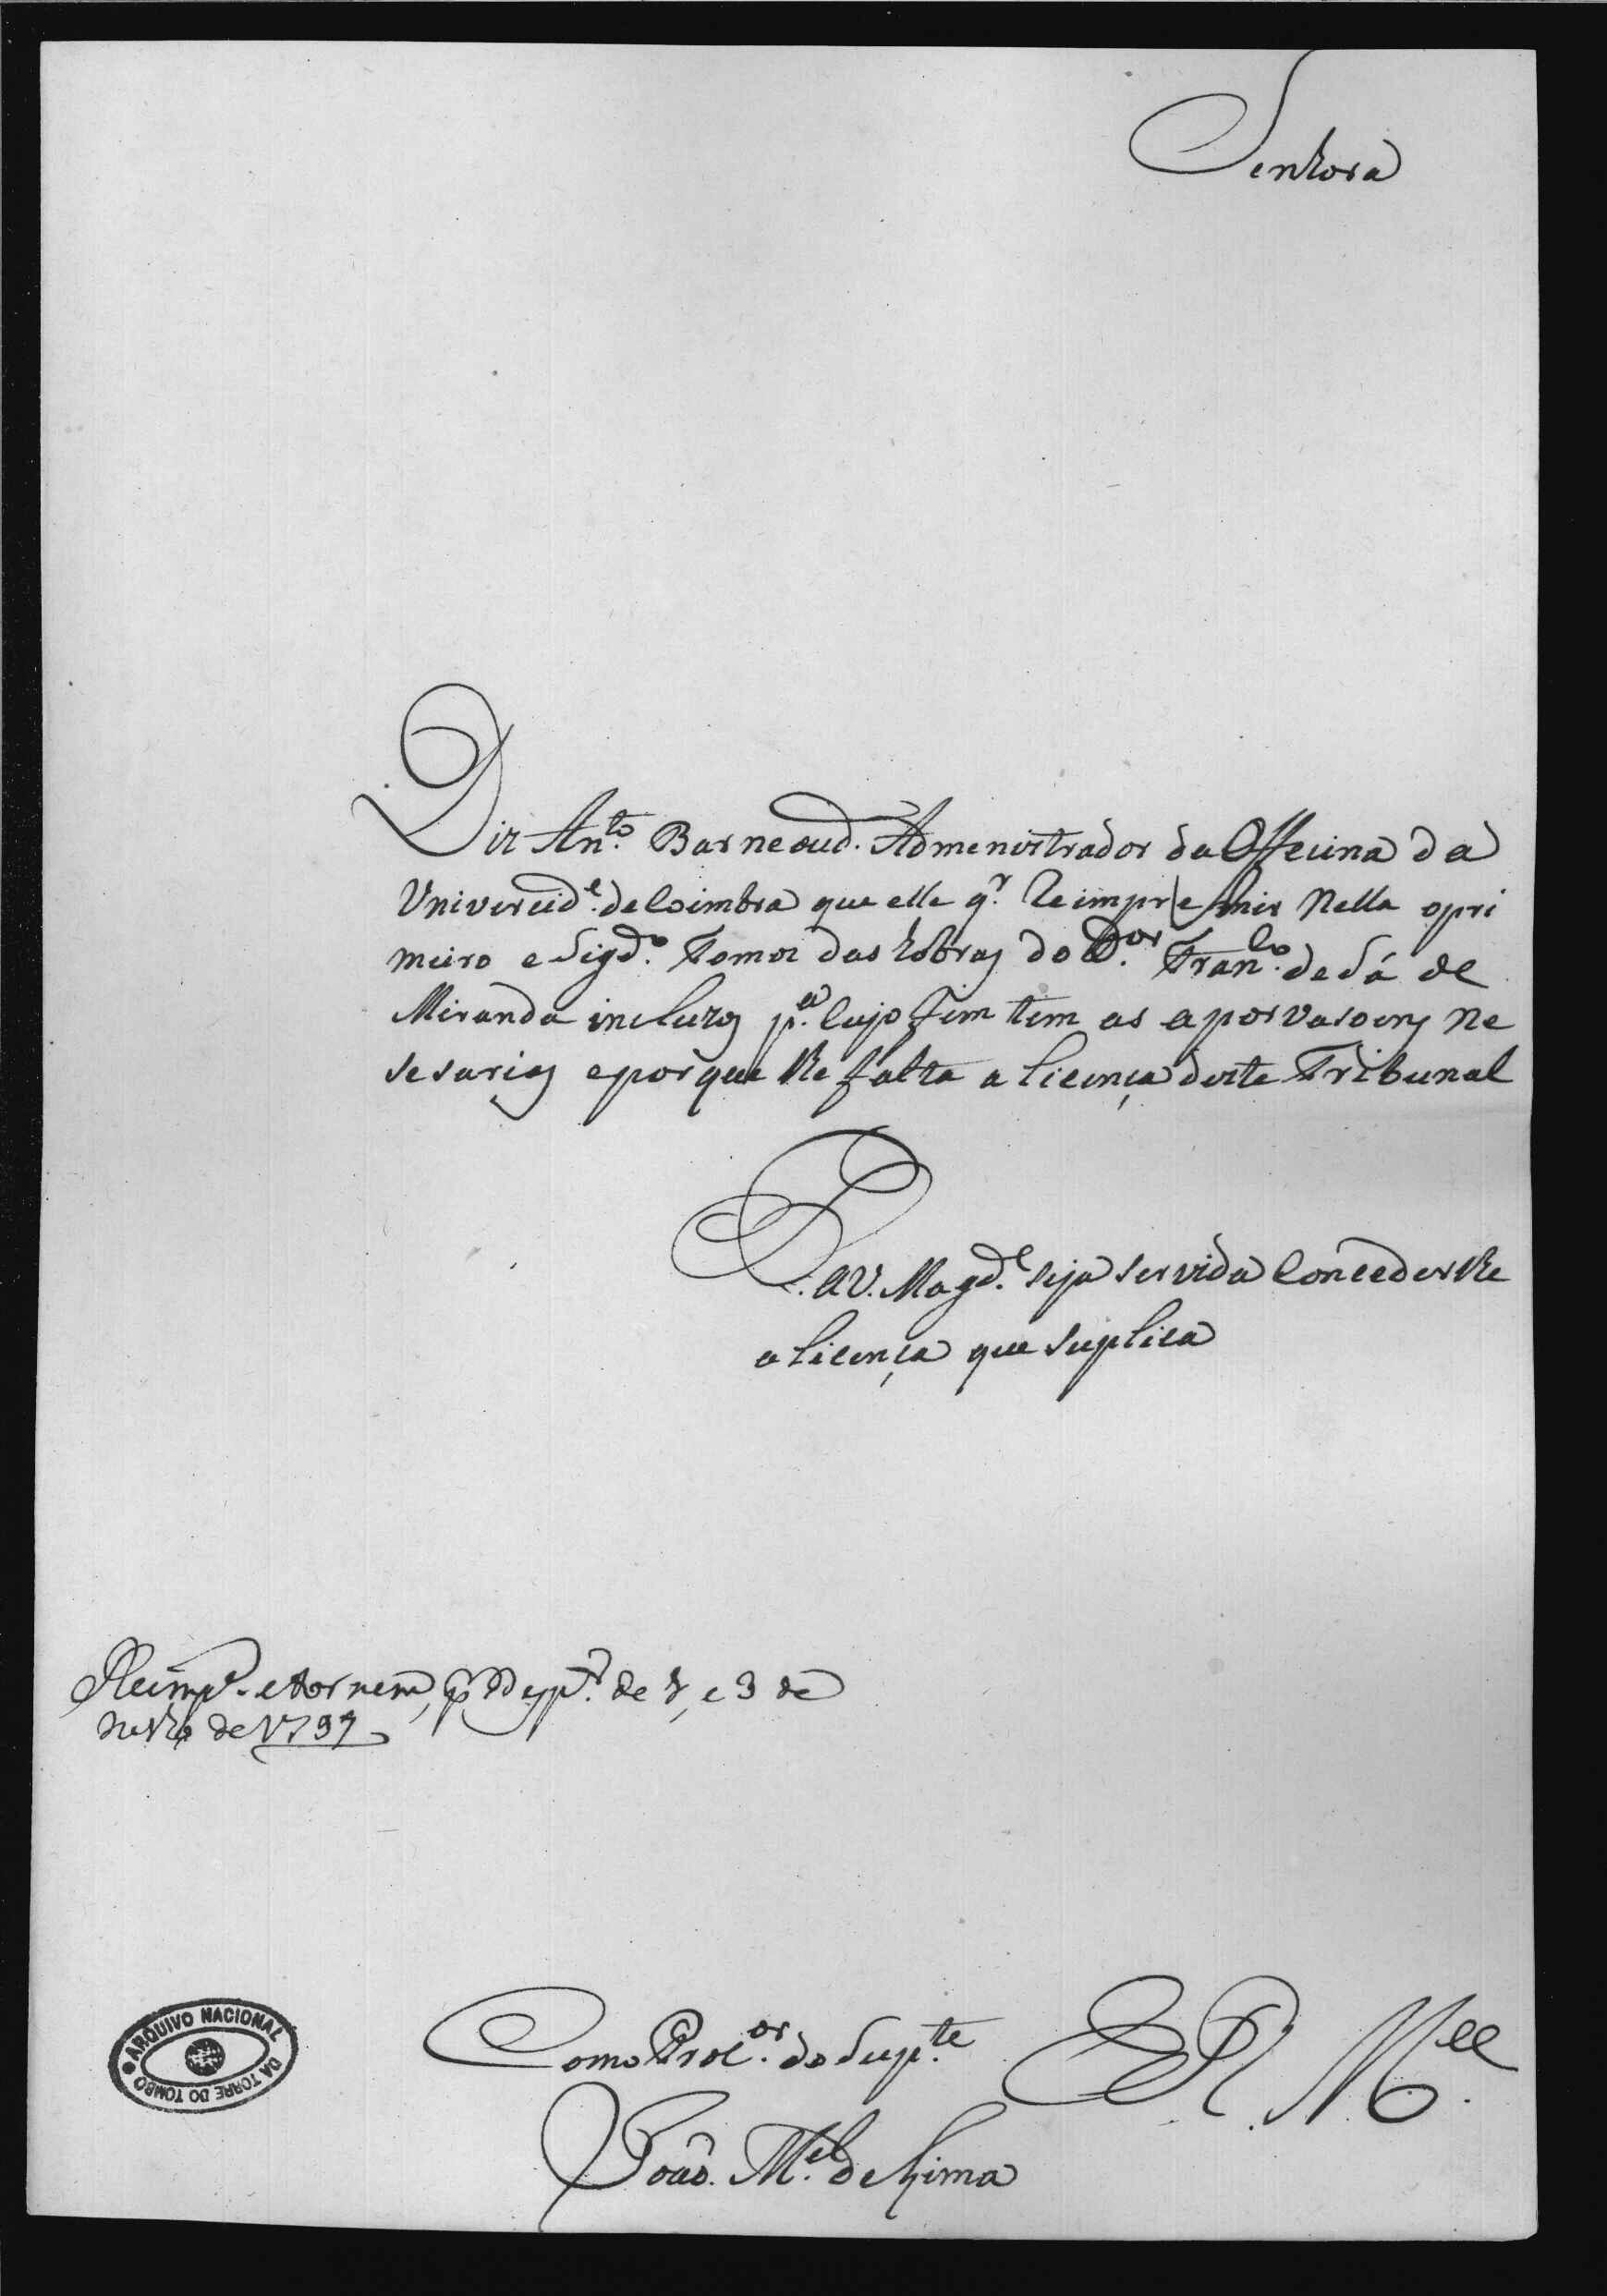 Senhora
Diz Ant.to Barneoud. Admenistrador da Offecina da
Univercid.e de Coimbra que elle q.r Reimpremir Nella opri
meiro e Sigd.o Tomoz das hobras do D.or Fran.co de Sá de
Miranda incluzos p.a Cujo fim tem as aporvasoens Ne
sesarias eporque lhe falta a licença deste Tribunal
P. a V. Magd.e seja servida Concederlhe
a licença que suplica
Reimp.e etornem,
de 1797
Como Proc.or do Sup.te
E R M.ce
João M.el de Lima
ARQUIVO NACIONAL DA TORRE DO TOMBO